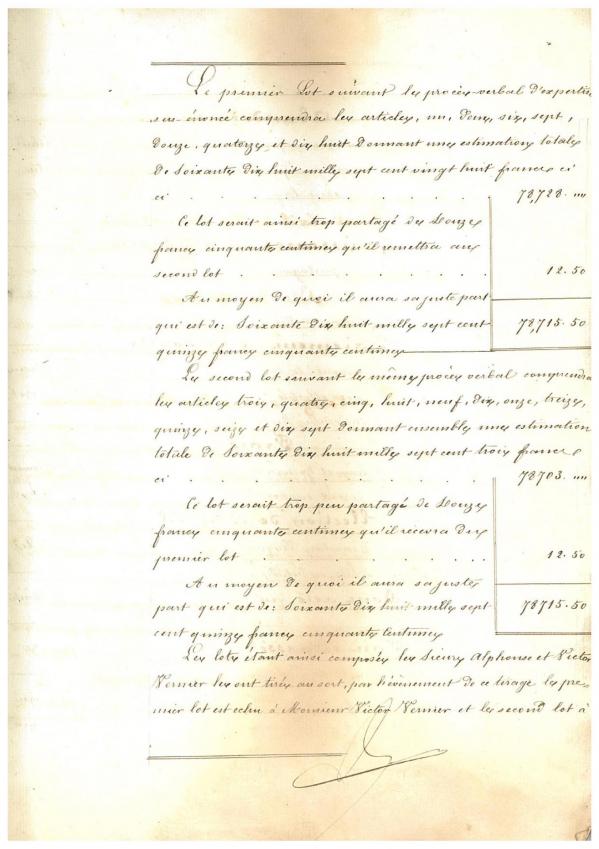 Le premier Lot suivant le procès-verbal d'expertise
sus-énoncé comprendra les articles, un, deux, six, sept,
douze, quatorze et dix huit donnant une estimation totale
de Soixante dix huit mille sept cent vingt huit francs ci
ci . . . . . . . . 78,728. ""
Ce lot serait ainsi trop partagé de Douze
francs cinquante centimes qu'il remettra au
second lot . . . . . . . 12.50
Au moyen de quoi il aura sa juste part
qui est de: Soixante dix huit mille sept cent 78,715.50
quinze francs cinquante centimes
Le second lot suivant le même procès verbal comprendra
les articles trois, quatre, cinq, huit, neuf, dix, onze, treize,
quinze, seize et dix sept donnant ensemble une estimation
totale de Soixante dix huit mille sept cent trois francs
ci . . . . . . . . 78703. ""
Ce lot serait trop peu partagé de Douze
francs cinquante centimes qu'il recevra du
premier lot . . . . . . . 12.50
Au moyen de quoi il aura sa juste
part qui est de: Soixante dix huit mille sept 78715.50
cent quinze francs cinquante centimes
Les lots étant ainsi composés les Sieurs Alphonse et Victor
Vernier les ont tirés au sort, par l'évènement de ce tirage le pre-
mier lot est echu à Monsieur Victor Vernier et le second lot à